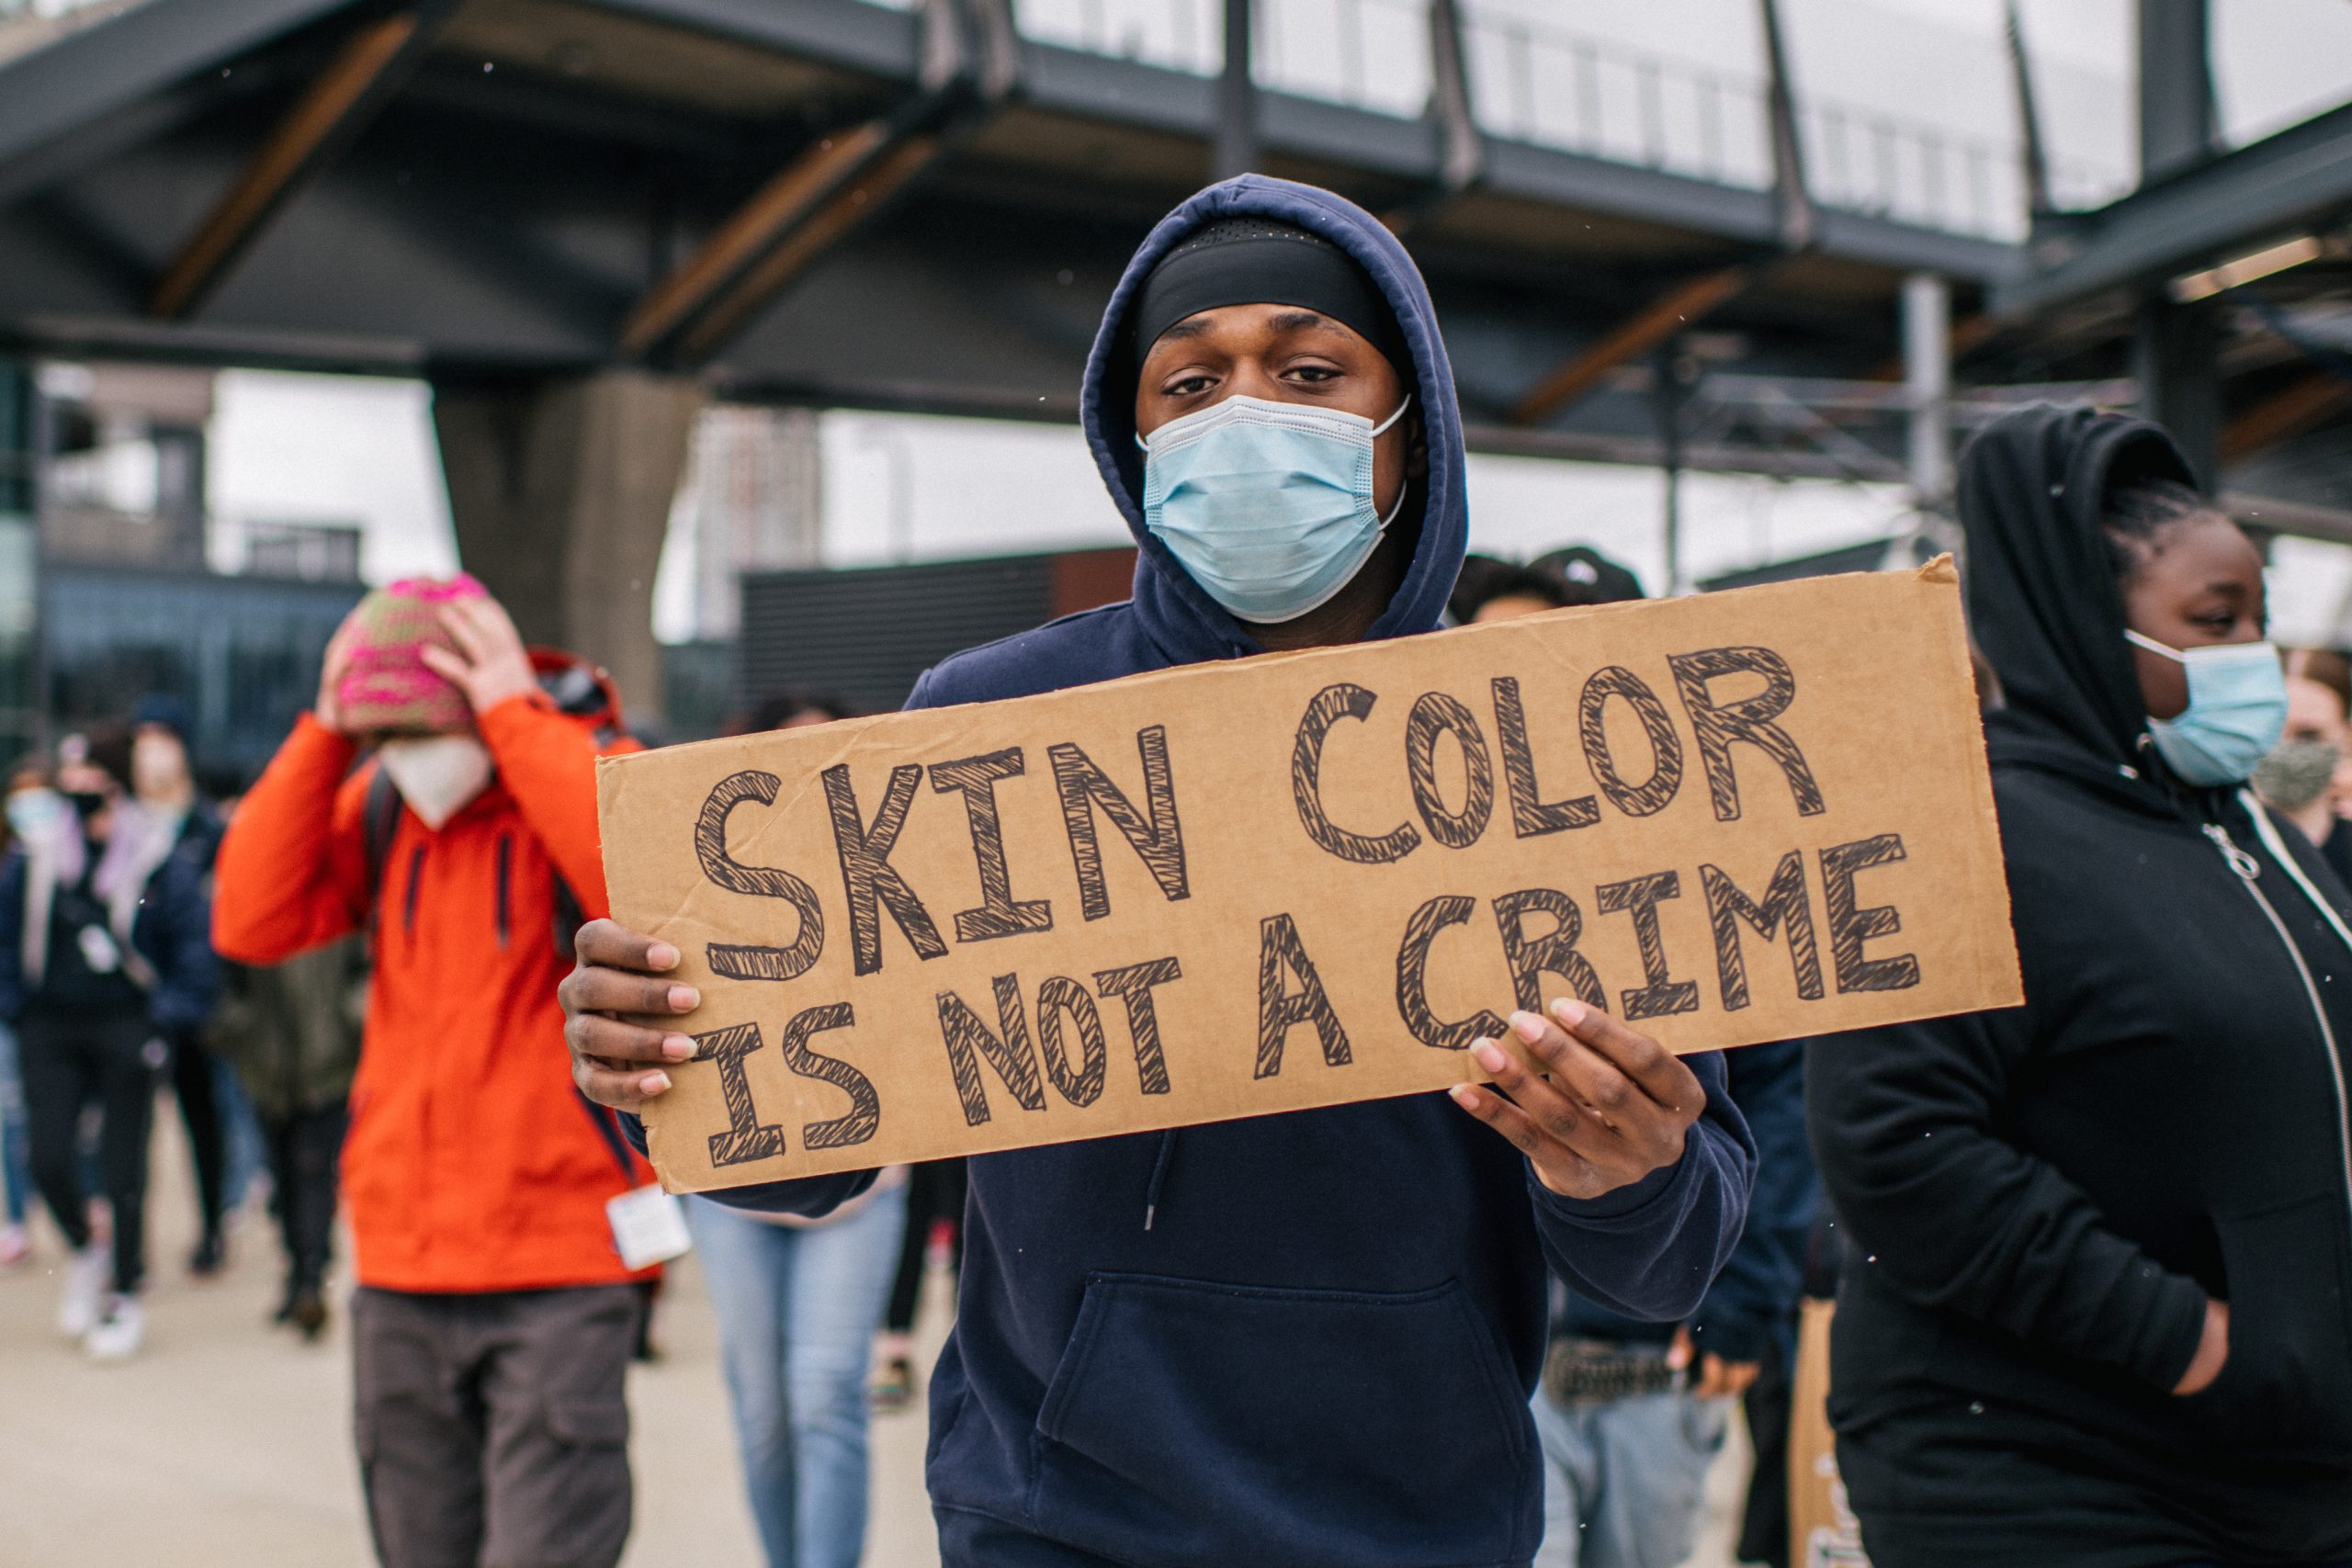 SKIN COLOR
IS NOT A CRIME